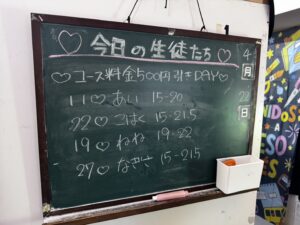 ♡ 今日の生徒たち ♡
♡コース料金500円引きDAY♡
11♡ あい 15-20
22♡ こはく 15-21.5
19♡ ねね 19-22
27♡ なぎさ 15-21.5
4
月
22
日